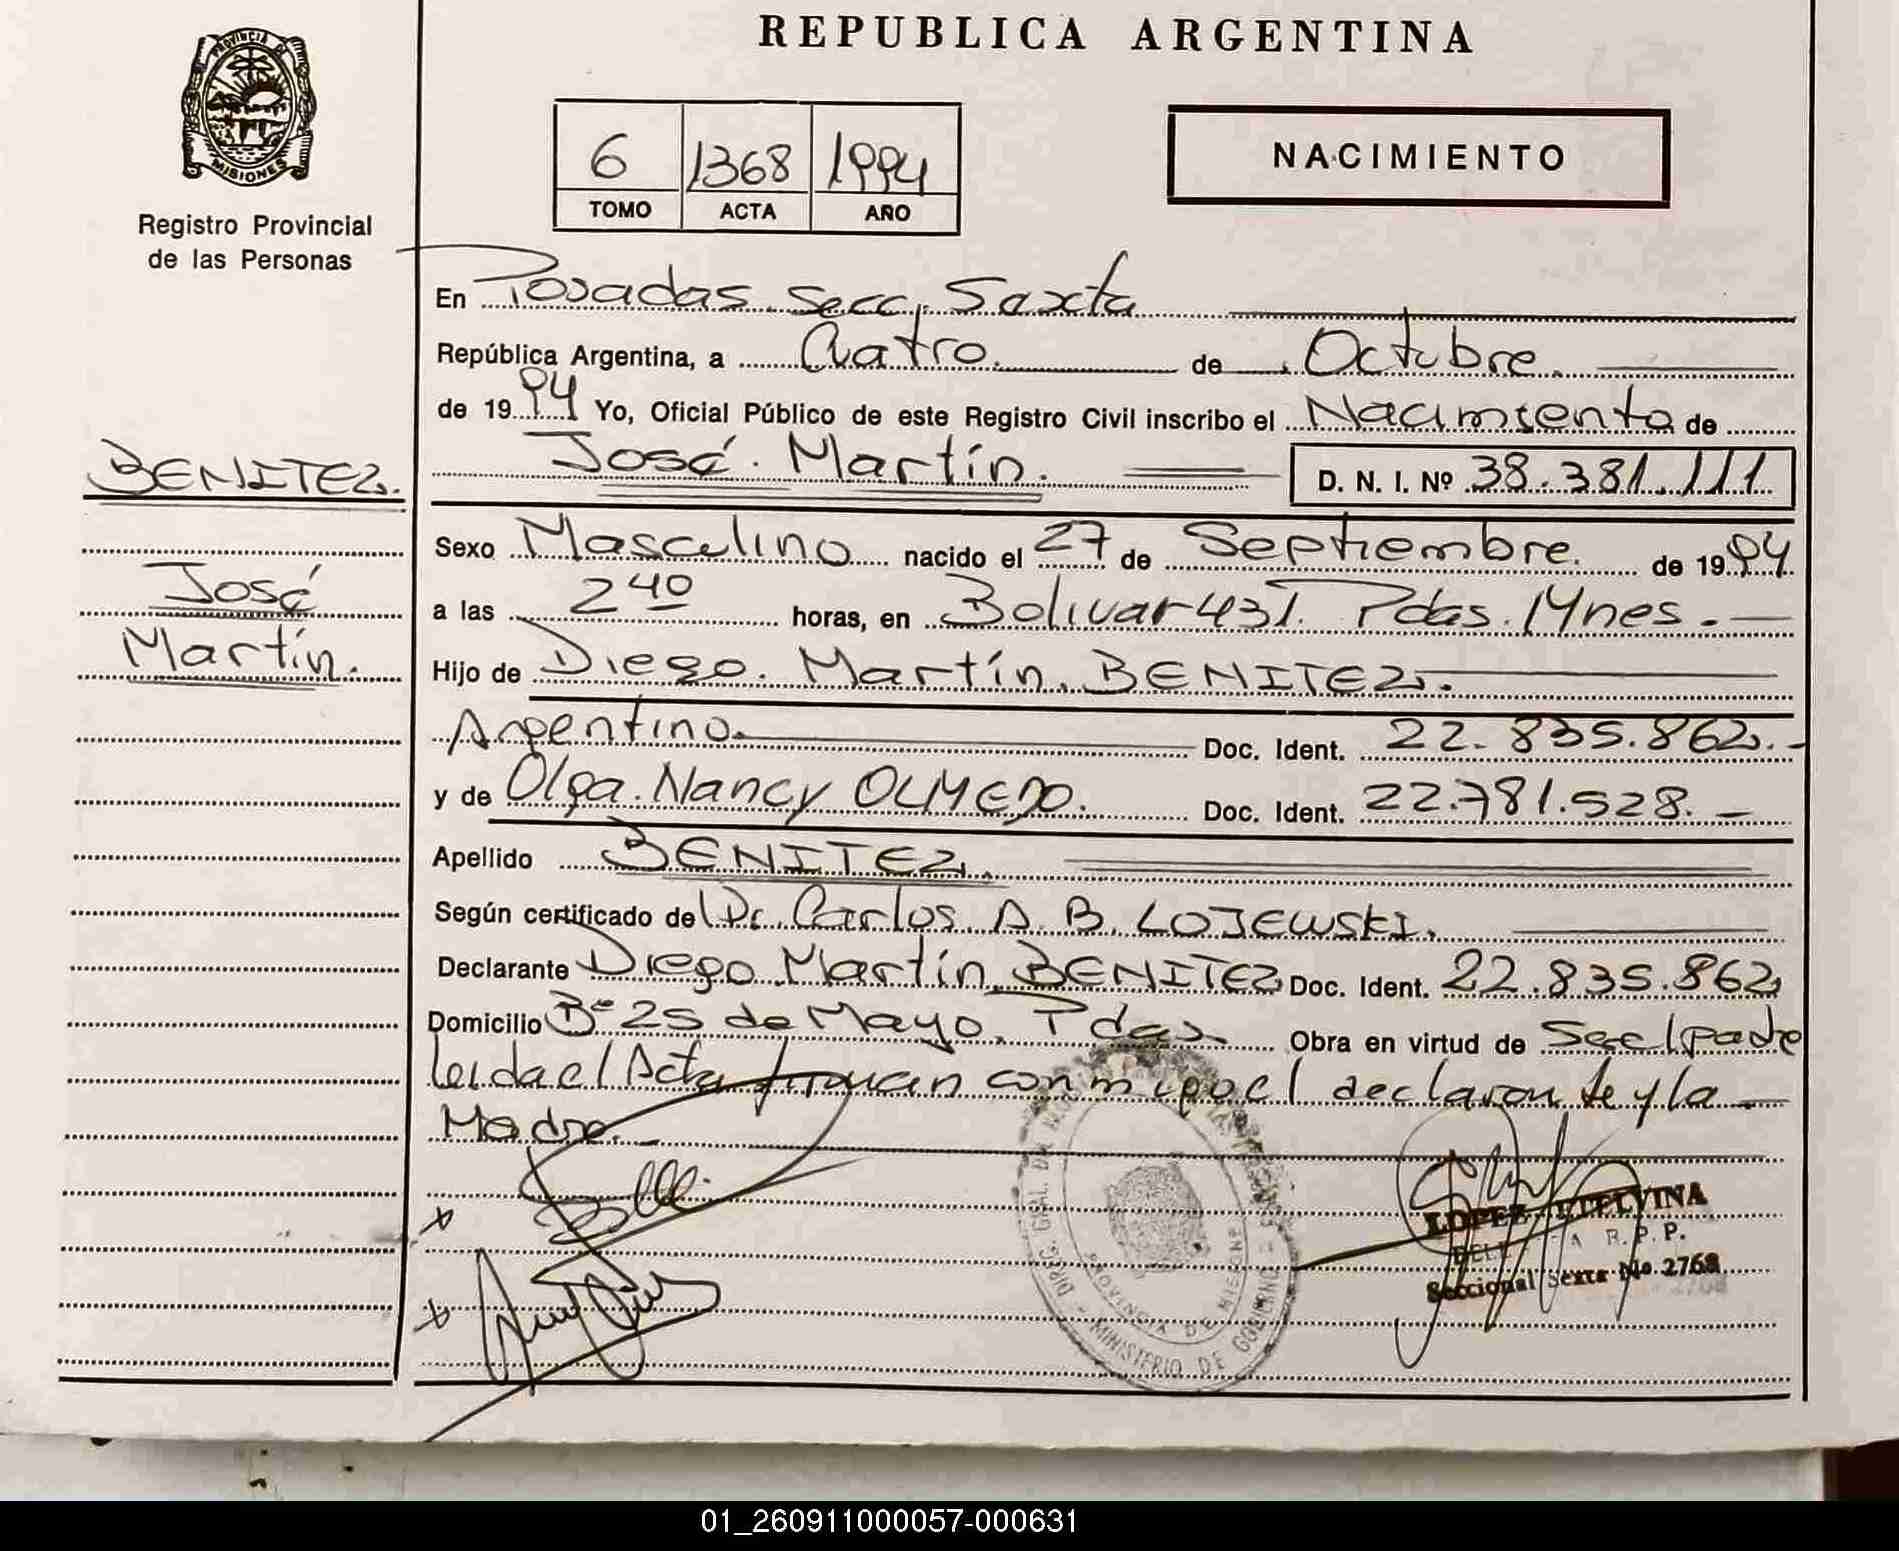 PROVINCIA DE
MISIONES
Registro Provincial
de las Personas
REPUBLICA ARGENTINA
6 1368 1994
TOMO ACTA AÑO
NACIMIENTO
En Posadas. Secc. Sexta
República Argentina, a Cuatro. de Octubre.
de 1994 Yo, Oficial Público de este Registro Civil inscribo el Nacimiento de
José. Martín. D. N. I. Nº 38.381.111
BENITEZ.
José
Martín.
Sexo Masculino nacido el 27 de Septiembre. de 1994
a las 2 40 horas, en Bolivar 431. Pdas. Mnes.-
Hijo de Diego. Martín. BENITEZ.
Argentino. Doc. Ident. 22.835.862.-
y de Olga. Nancy OLMEDO. Doc. Ident. 22.781.528.-
Apellido BENITEZ.
Según certificado de Dr. Carlos A. B. LOJEWSKI.
Declarante Diego Martín BENITEZ Doc. Ident. 22.835.862
Domicilio Bº 25 de Mayo. Pdas. Obra en virtud de Ser el padre
leida el Acta firman conmigo el declarante y la
Madre.-
DIREC. GRAL. DEL
PROVINCIA DE MISIONES
MINISTERIO DE GOBIERNO
LOPEZ ETELVINA
R. P. P.
Seccional Sexta No. 2768
01_260911000057-000631